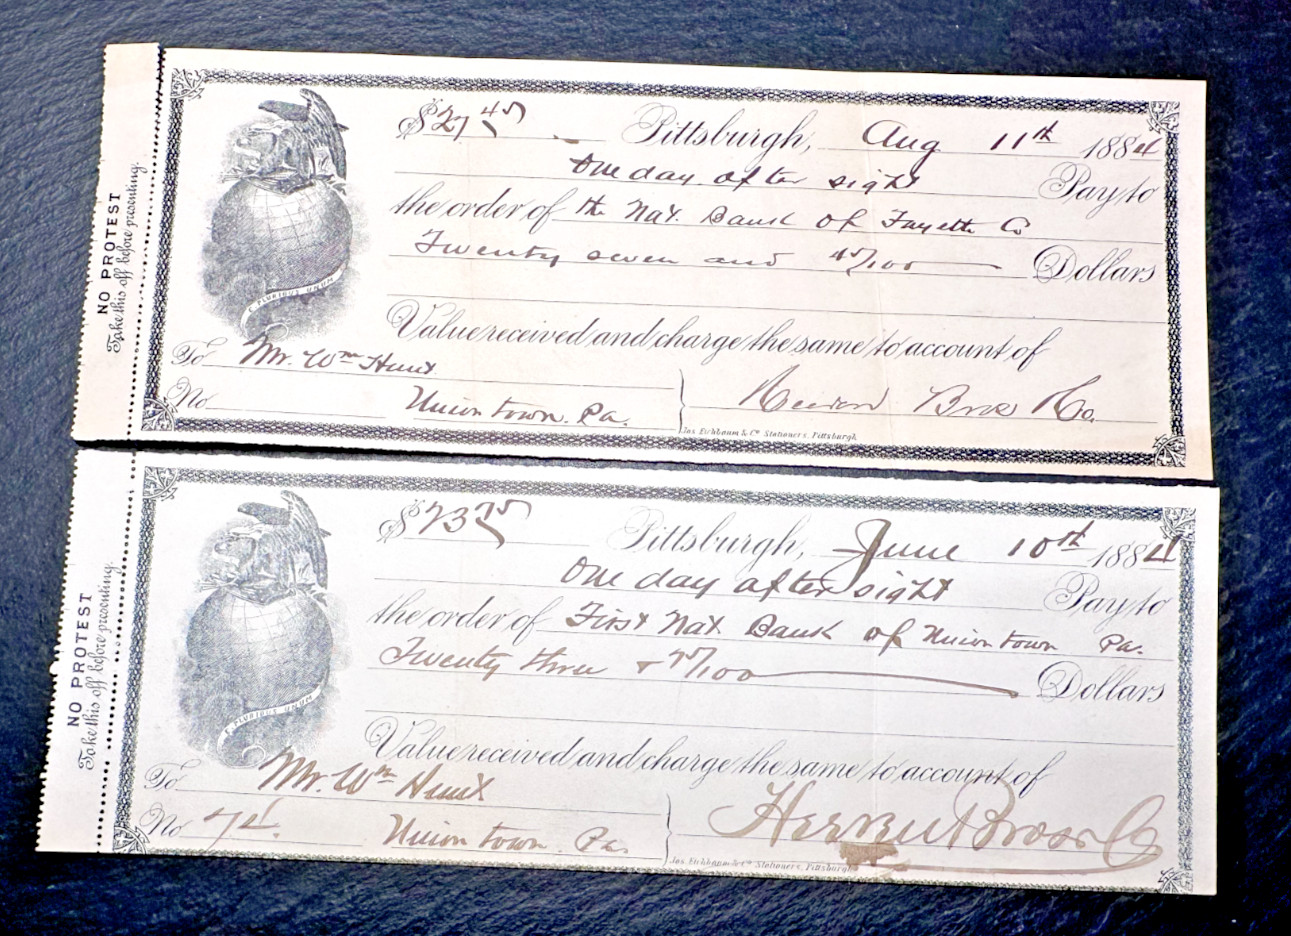 NO PROTEST
Take this off before presenting.
$27 45 Pittsburgh, Aug 11th 1884
One day after sight Pay to
the order of the Nat. Bank of Fayette Co
Twenty seven and 45/100 Dollars
E PLURIBUS UNUM
Value received and charge the same to account of
To Mr. Wm Hunt
No Uniontown. Pa. Bros Co.
Jos. Eichbaum & Co Stationers, Pittsburgh
NO PROTEST
Take this off before presenting.
$23 75 Pittsburgh, June 10th 1884
One day after sight Pay to
the order of First Nat Bank of Uniontown Pa.
Twenty three + 75/100 Dollars
E PLURIBUS UNUM
Value received and charge the same to account of
To Mr. Wm Hunt
No Uniontown Pa. Bros & Co
Jos. Eichbaum & Co Stationers, Pittsburgh